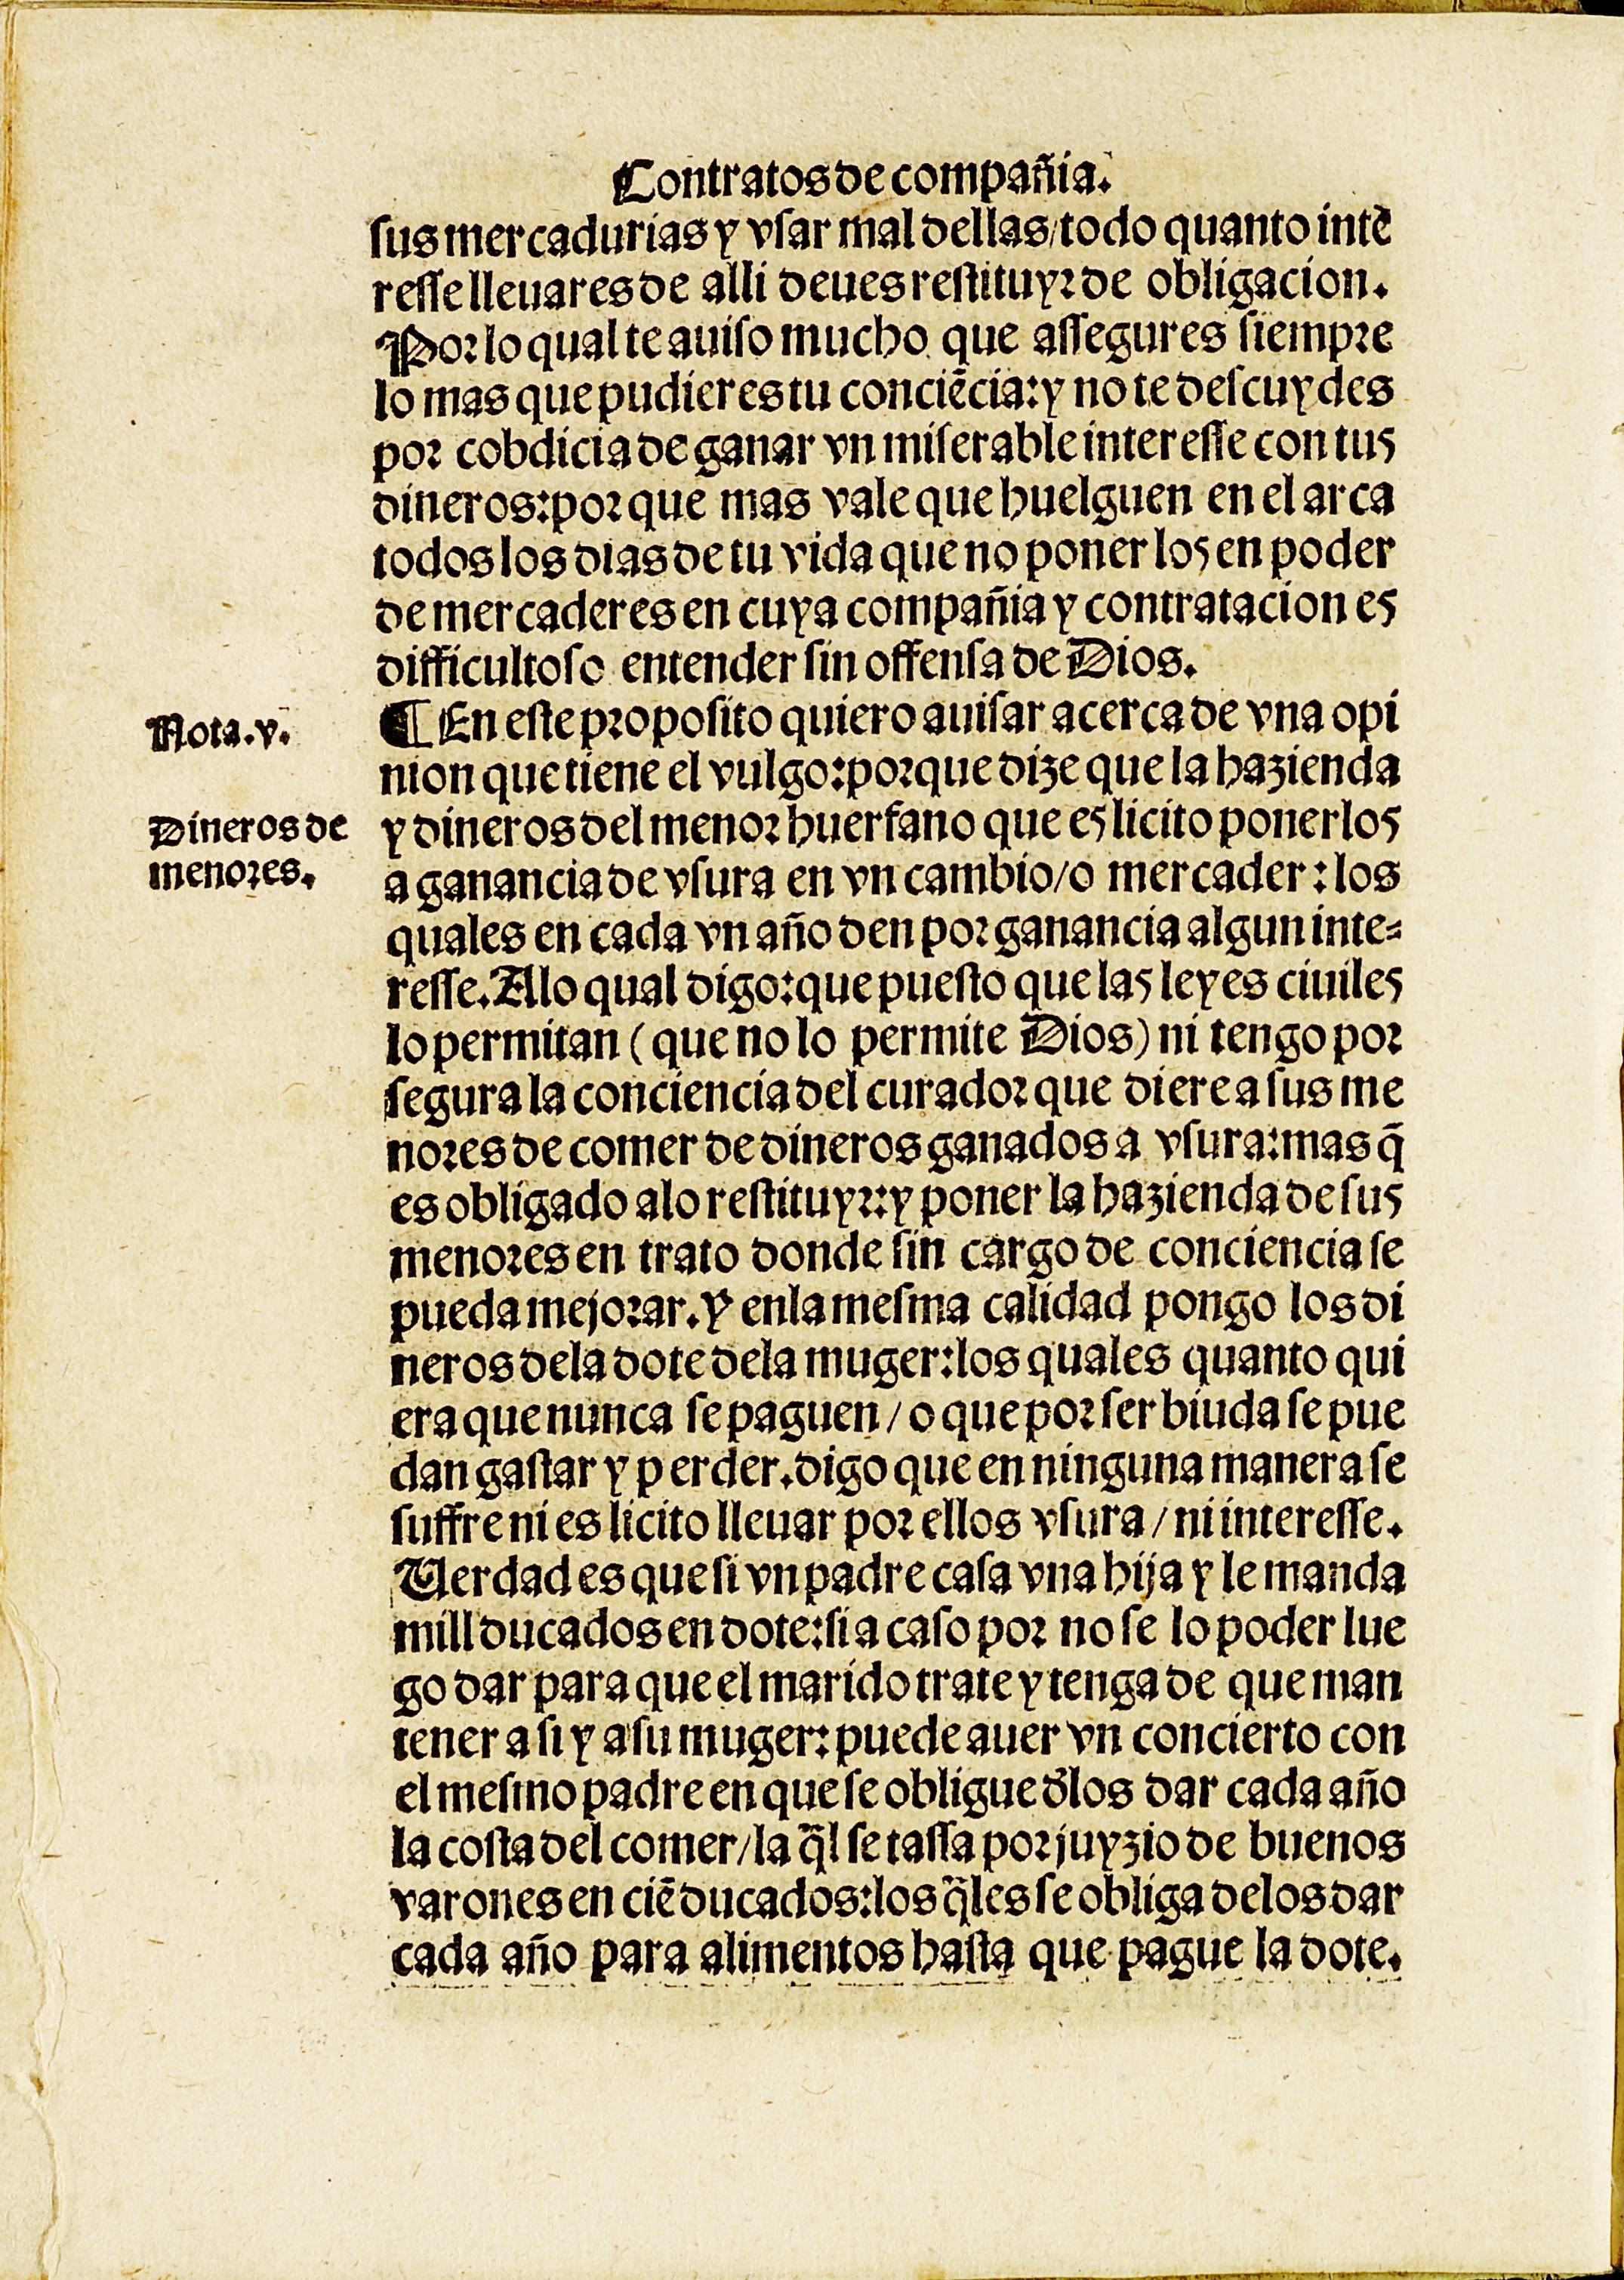 Contratos de compañia.
sus mercadurias y vsar mal dellas/todo quanto intē
resse lleuares de alli deues restituyr de obligacion.
Por lo qual te auiso mucho que assegures siempre
lo mas que pudieres tu conciēcia: y no te descuydes
por cobdicia de ganar vn miserable interesse con tus
dineros: porque mas vale que huelguen en el arca
todos los dias de tu vida que no poner los en poder
de mercaderes en cuya compañia y contratacion es
difficultoso entender sin offensa de Dios.
Nota.v.
¶ En este proposito quiero auisar acerca de vna opi
nion que tiene el vulgo: porque dize que la hazienda
Dineros de
menores.
y dineros del menor huerfano que es licito ponerlos
a ganancia de vsura en vn cambio/o mercader: los
quales en cada vn año den por ganancia algun inte-
resse. Alo qual digo: que puesto que las leyes ciuiles
lo permitan (que no lo permite Dios) ni tengo por
segura la conciencia del curador que diere a sus me
nores de comer de dineros ganados a vsura: mas q̄
es obligado alo restituyr: y poner la hazienda de sus
menores en trato donde sin cargo de conciencia se
pueda mejorar. Y enla mesma calidad pongo los di
neros dela dote dela muger: los quales quanto qui
era que nunca se paguen/o que por ser biuda se pue
dan gastar y perder. digo que en ninguna manera se
suffre ni es licito lleuar por ellos vsura/ni interesse.
Verdad es que si vn padre casa vna hija y le manda
mill ducados en dote: si a caso por no se lo poder lue
go dar para que el marido trate y tenga de que man
tener a si y a su muger: puede auer vn concierto con
el mesmo padre en que se obligue d̄los dar cada año
la costa del comer/la q̄l se tassa por juyzio de buenos
varones en ciē ducados: los q̄les se obliga delos dar
cada año para alimentos hasta que pague la dote.